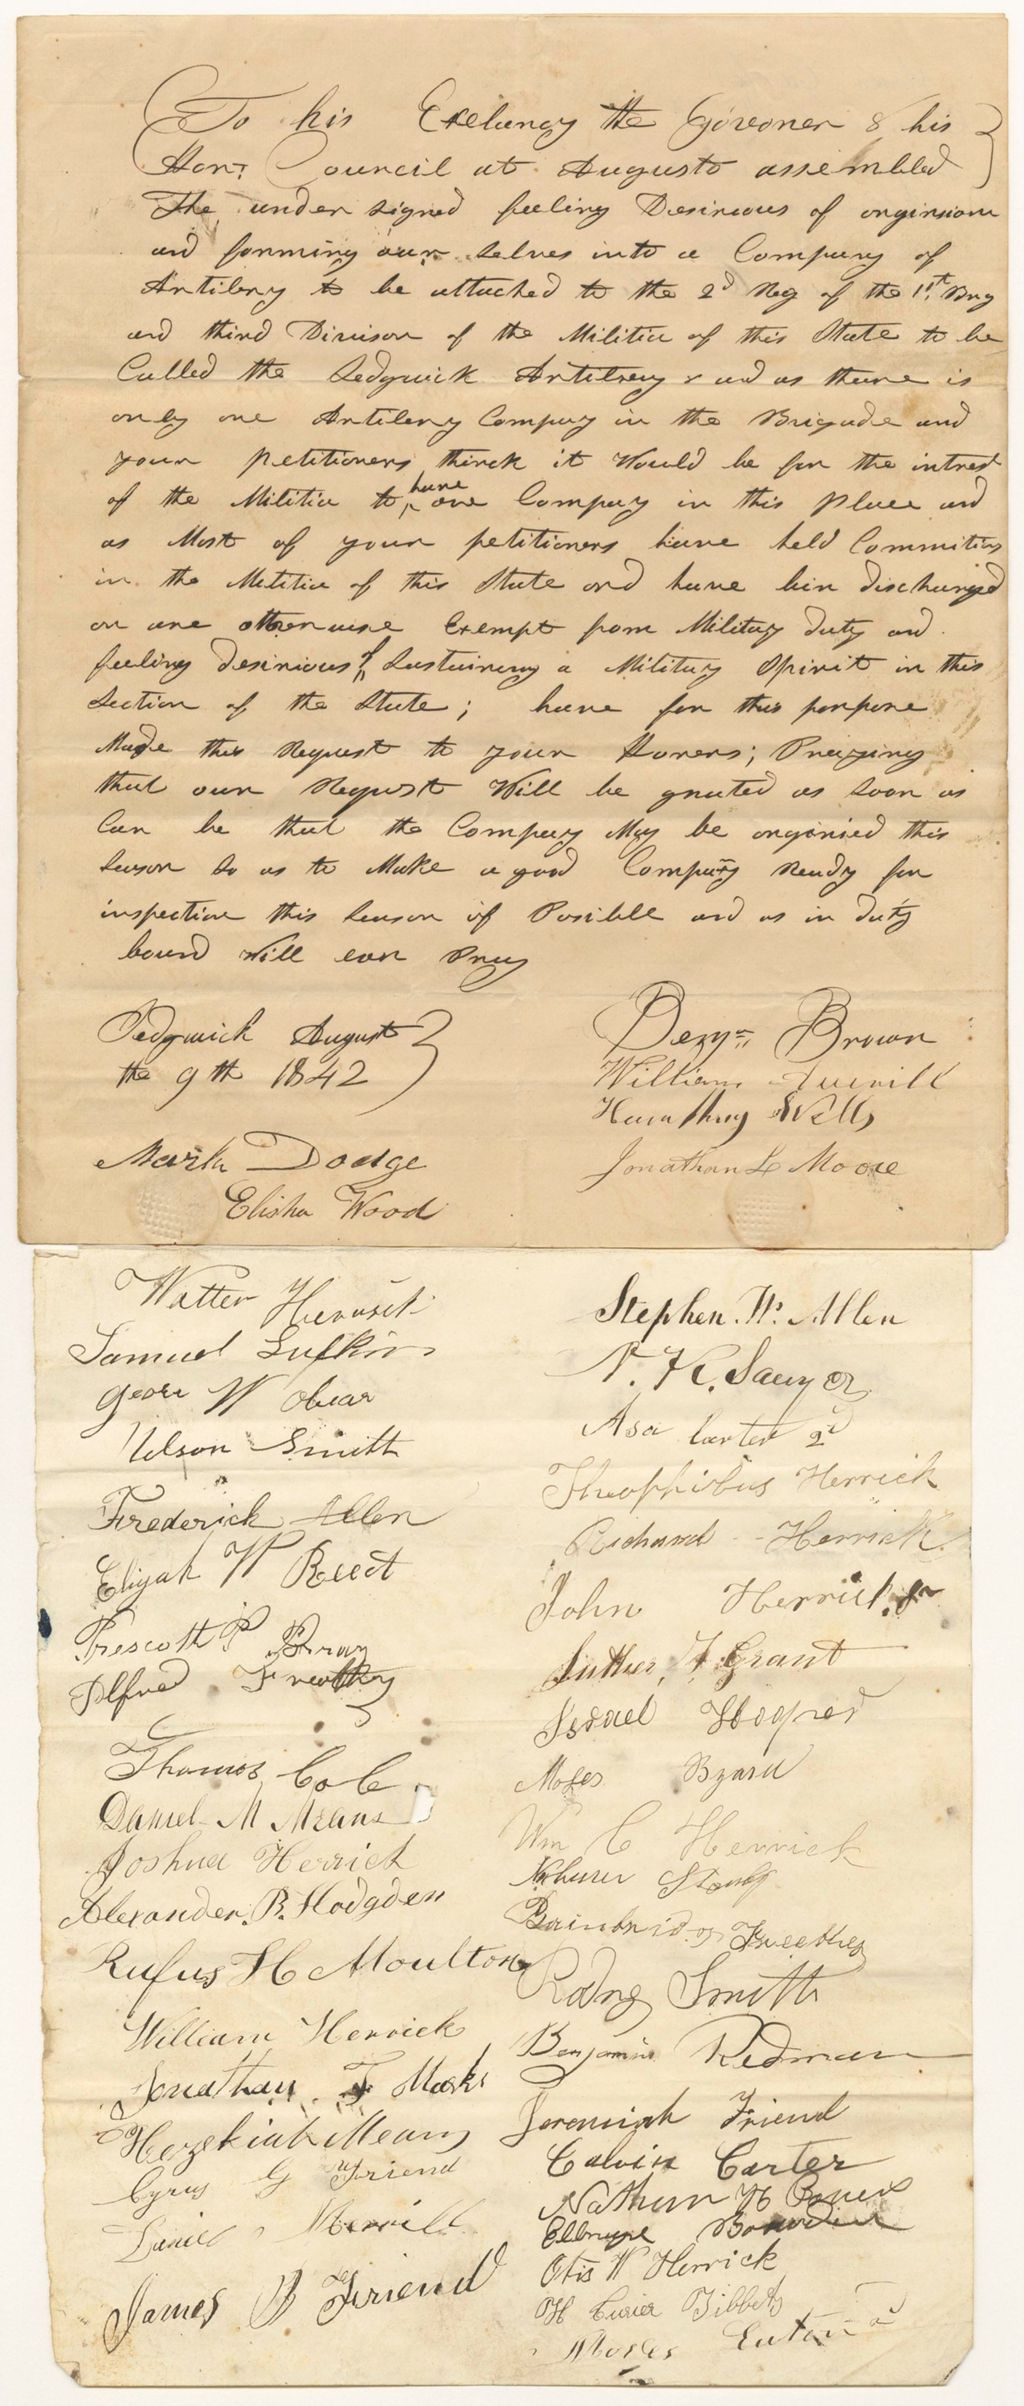 To his Exelancy the Goveoner & his
Hon. Council at Augusto assembled
The under signed feeling Desirious of
and forming our selves into a Company of
Artilery to be attached to the 2d Reg of the 1st Brig
and third Divison of the Militia of this State to be
Called the Sedgwick Artilrey & and as there is
only one Artilery Company in the Brigade and
your petitioners think it Would be for the intrest
of the Militia to have one Company in this place and
as Most of your petitioners have held Commitins
in the Militia of this State and have bin discharged
or are otherwise Exempt from Military duty and
feeling desirious of Sustaining a Military Spirit in this
Section of the State; have for this porpose
Made this Request to your Honers; Praying
that our Request Will be grated as Soon as
Can be that the Company May be orgonied this
Season So as to Make a good Company Ready for
inspection this Season if Posible and as in duty
bound Will ever Pray
Sedgwick August
the 9th 1842
Benj'n Brown
William
Humphry Wells
Jonathan L Moore
Mark Dodge
Elisha Wood
Walter
Samuel Lufkin
W Obear
Nelson Smith
Frederick Allen
Elijah W
Prescott P Bray
Alfred
Thomas Cole
Daniel M Means
Joshua Herrick
Alexander B. Hodgden
Rufus H Moulton
William Herrick
Jonathan F Marks
Hezekiah Means
Cyrus G Friend
Merrill
James B Friend
Stephen W. Allen
N. K. Sawyer
Asa Carter 2d
Theophilus Herrick
Richard Herrick
John Herrick Jr
Luther F Grant
Israel
Moses
Wm C Herrick

Rodny Smith
Benjamin Redman
Jeremiah Friend
Calvin Carter
Nathan H
Bowden
Otis W Herrick
H Tibbets
Moses Eaton